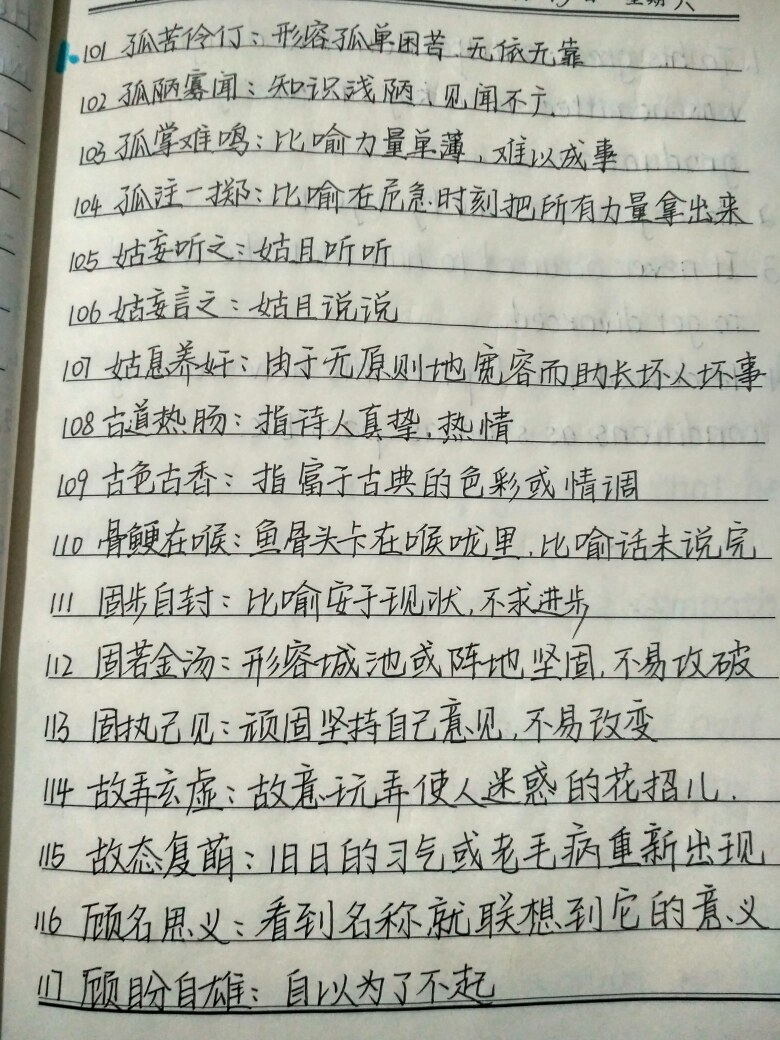 星期六
101 孤苦伶仃：形容孤单困苊，无依无靠
102 孤陋寡闻：知识浅陋，见闻不广
103 孤掌难鸣：比喻力量单薄，难以成事
104 孤注一掷：比喻在危急时刻把所有力量拿出来
105 姑妄听之：姑且听听
106 姑妄言之：姑且说说
107 姑息养奸：由于无原则地宽容而助长坏人坏事
108 古道热肠：指诗人真挚，热情
109 古色古香：指富于古典的色彩或情调
110 骨鲠在喉：鱼骨头卡在喉咙里，比喻话未说完
111 固步自封：比喻安于现状，不求进步
112 固若金汤：形容城池或阵地坚固，不易攻破
113 固执己见：顽固坚持自己意见，不易改变
114 故弄玄虚：故意玩弄使人迷惑的花招儿.
115 故态复萌：旧日的习气或老毛病重新出现
116 顾名思义：看到名称就联想到它的意义
117 顾盼自雄：自以为了不起